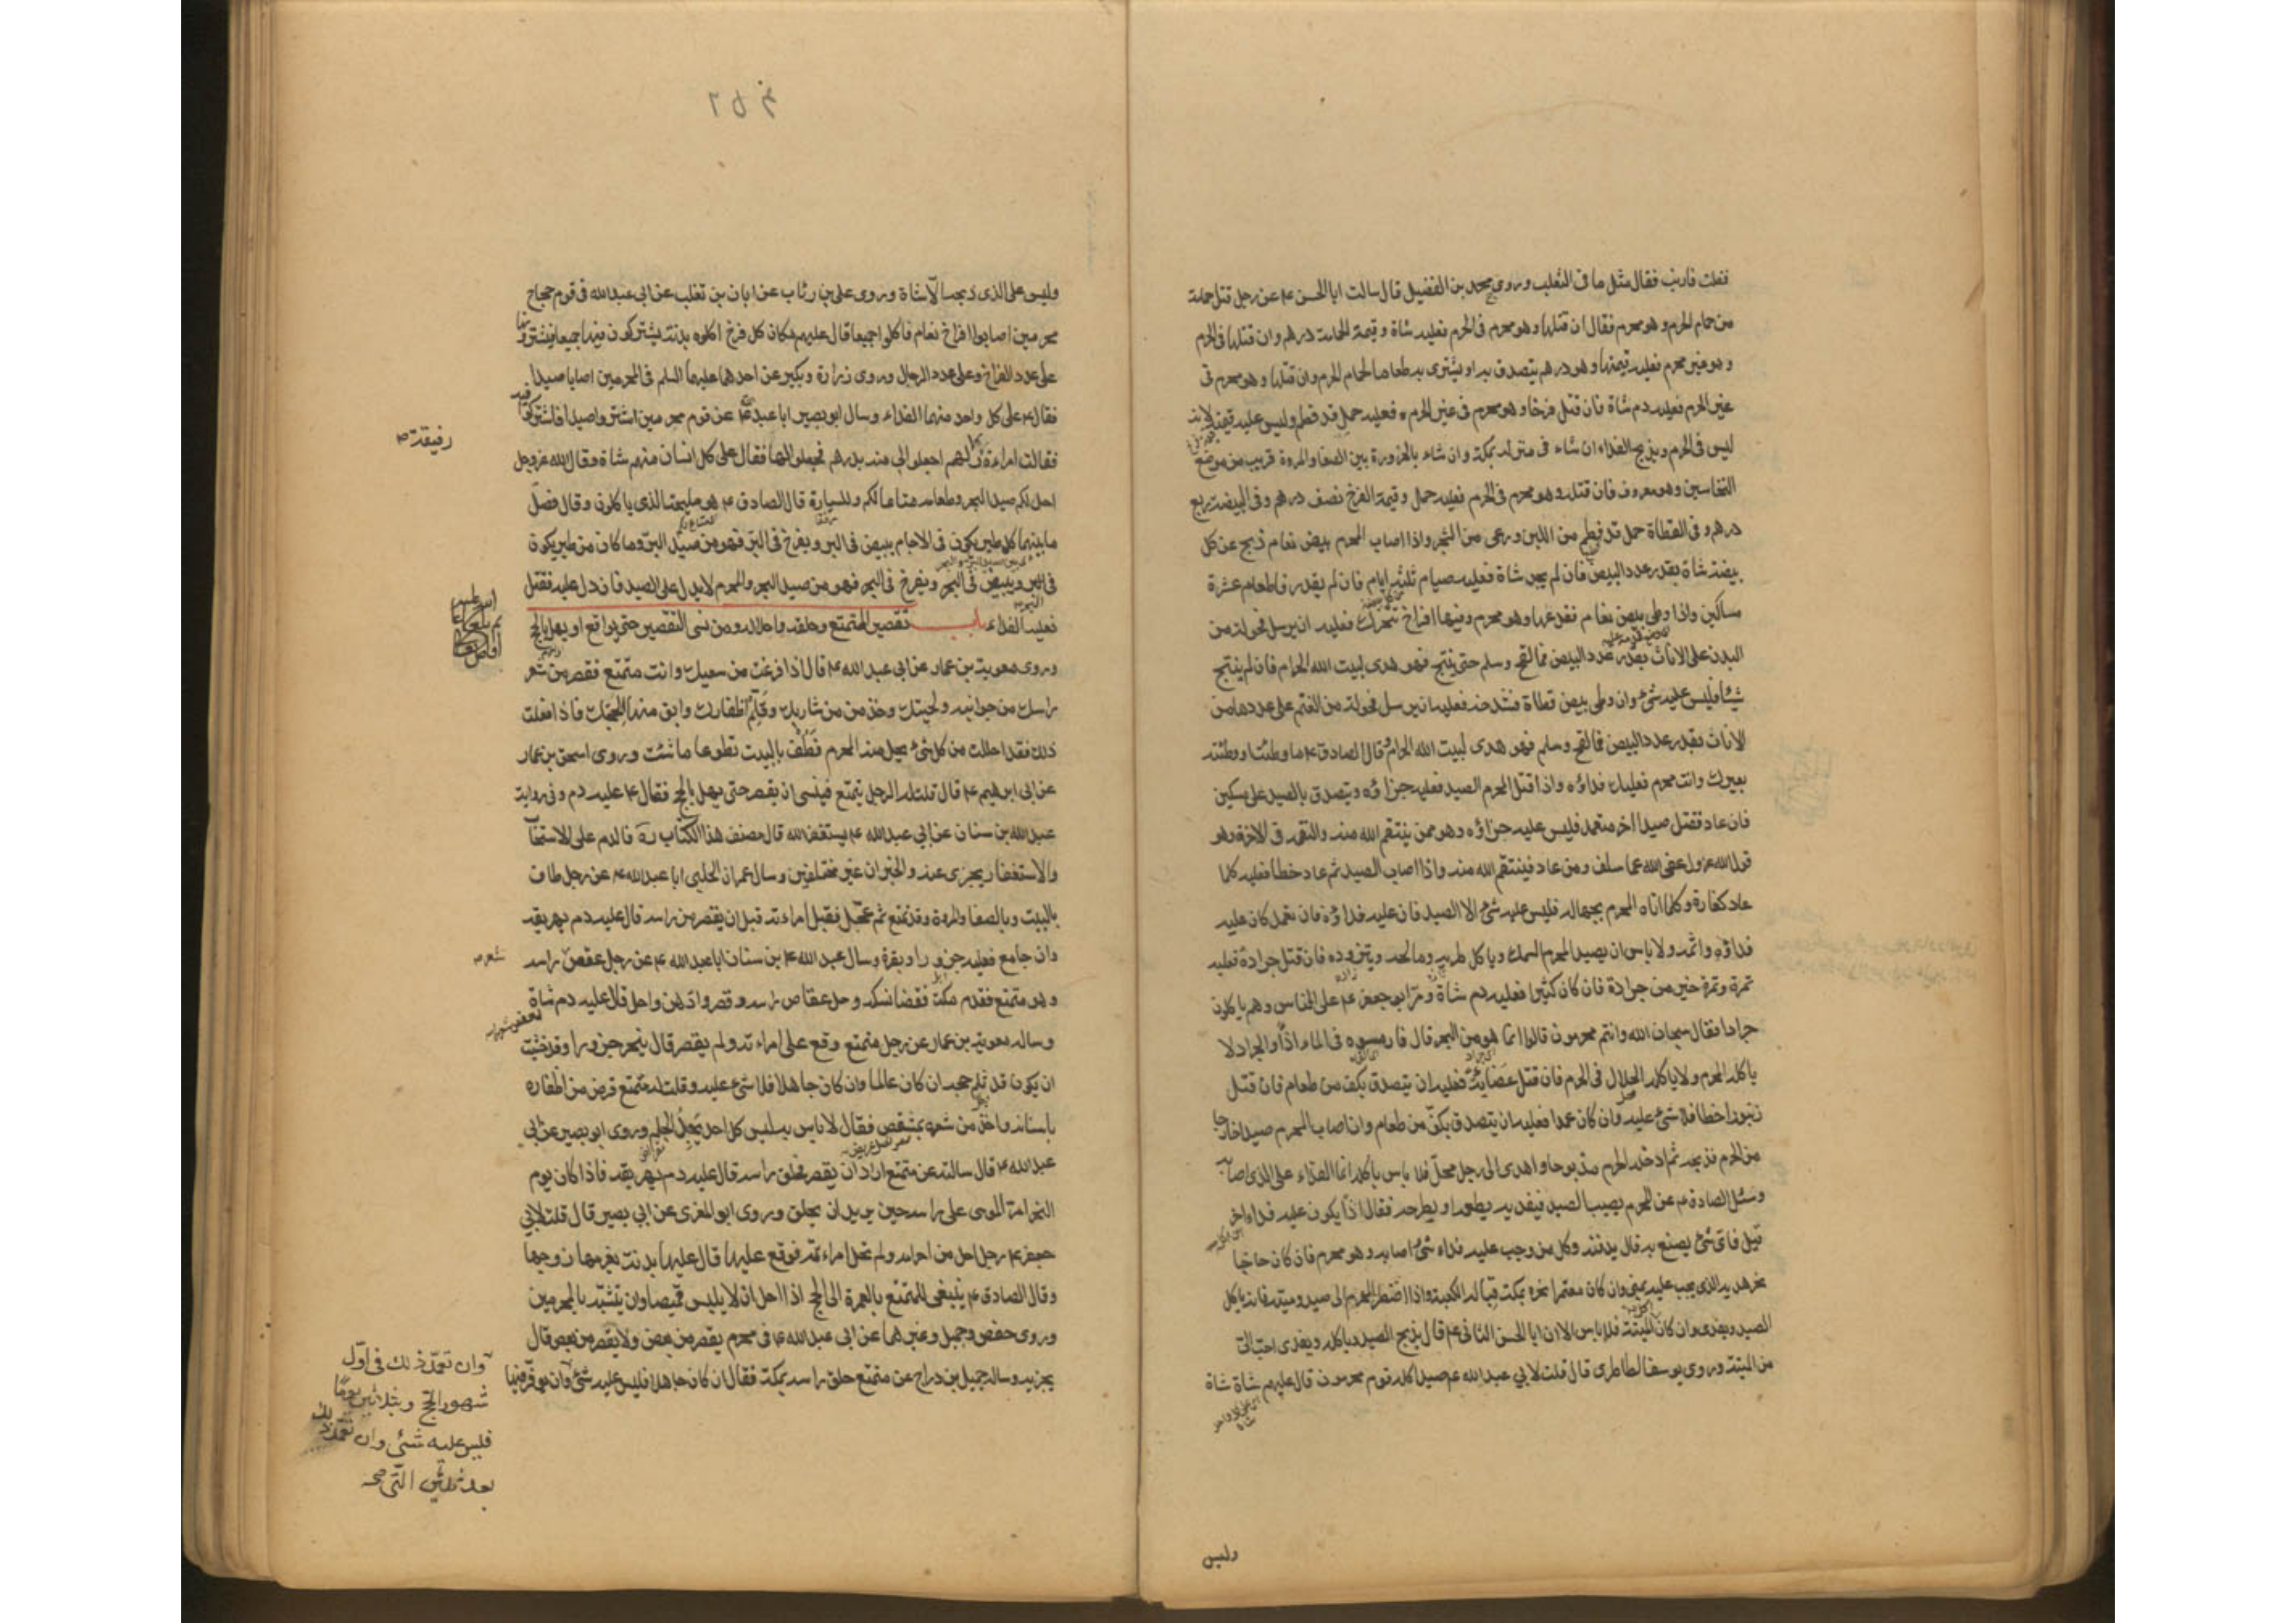 فقلت فارنب فقال مثل ما فى الثعلب وروى محمد بن الفضيل قال سالت ابا الحسن ع عن رجل قتل حمامة
من حمام الحرم وهو محرم فقال ان قتلها وهو محرم فى الحرم فعليه شاة وقيمة الحمامة درهم وان قتلها فى الحرم
وهو غير محرم فعليه قيمتها وهو درهم يتصدق به او يشترى به طعاما لحمام الحرم وان قتلها وهو محرم فى
غير الحرم فعليه دم شاة فان قتل فرخا وهو محرم فى غير الحرم فعليه حمل قد فطم وليس عليه قيمته لانه
ليس فى الحرم ويذبح الفداء ان شاء فى منزله بمكة وان شاء بالحزورة بين الصفا والمروة قريب من موضع
النخاسين وهو معروف فان قتله وهو محرم فى الحرم فعليه حمل وقيمة الفرخ نصف درهم وفى البيضة ربع
درهم وفى القطاة حمل قد فطم من اللبن ورعى من الشجر واذا اصاب المحرم بيض نعام ذبح عن كل
بيضة شاة بقدر عدد البيض فان لم يجد شاة فعليه صيام ثلثة ايام فان لم يقدر فاطعام عشرة
مساكين واذا وطى بيض نعام ففدغها وهو محرم وفيها افراخ تتحرك فعليه ان يرسل فحولة من
البدن على الاناث بقدر عدد البيض فما لقح وسلم حتى ينتج فهو هدى لبيت الله الحرام فان لم ينتج
شيئا فليس عليه شئ وان وطى بيض قطاة فشدخه فعليه ان يرسل فحولة من الغنم على عددها من
الاناث بقدر عدد البيض فما لقح وسلم فهو هدى لبيت الله الحرام وقال الصادق ع ما وطئت او وطئته
بعيرك وانت محرم فعليك فداؤه واذا قتل المحرم الصيد فعليه جزاؤه ويتصدق بالصيد على مسكين
فان عاد فقتل صيدا اخر متعمد فليس عليه جزاؤه وهو ممن ينتقم الله منه والنقمة فى الاخرة وهو
قول الله عز وجل عفى الله عما سلف ومن عاد فينتقم الله منه واذا اصاب الصيد ثم عاد خطأ فعليه كلما
عاد كفارة وكلما اتاه المحرم بجهالة فليس عليه شئ الا الصيد فان عليه فداؤه فان تعمد كان عليه
فداؤه واثمه ولا باس ان يصيد المحرم السمك وياكل طريه ومالحه ويتزوده فان قتل جرادة فعليه
تمرة وتمرة خير من جرادة فان كان كثيرا فعليه دم شاة ومر ابو جعفر ع على الناس وهم ياكلون
جرادا فقال سبحان الله وانتم محرمون قالوا انما هو من البحر قال فارمسوه فى الماء اذا والجراد لا
ياكله المحرم ولا ياكله الحلال فى الحرم فان قتل عضاية فعليه ان يتصدق بكف من طعام فان قتل
زنبورا خطا فلا شئ عليه وان كان عمدا فعليه ان يتصدق بكف من طعام وان اصاب المحرم صيدا خارجا
من الحرم فذبحه ثم ادخله الحرم مذبوحا واهدى الى رجل محل فلا باس باكله انما الفداء على الذى اصابه
وسئل الصادق ع عن المحرم يصيب الصيد فيفديه يطعمه او يطرحه فقال اذا يكون عليه فداء اخر
قيل فاى شئ يصنع به قال يدفنه وكل من وجب عليه فداء شئ اصابه وهو محرم فان كان حاجا
نحر هديه الذى يجب عليه بمنى وان كان معتمرا نحره بمكة قبالة الكعبة واذا اضطر المحرم الى صيد وميتة فانه ياكل
الصيد ويفدى وان كان الميتة فلا باس الا ان ابا الحسن الثانى ع قال يذبح الصيد وياكله ويفدى احب الى
من الميتة وروى يوسف الطاطرى قال قلت لابى عبد الله ع صيد اكله قوم محرمون قال عليهم شاة شاة
وليس
وليس على الذى ذبحه الا شاة وروى على بن رئاب عن ابان بن تغلب عن ابى عبد الله فى قوم حجاج
محرمين اصابوا افراخ نعام فاكلوا جميعا قال عليهم مكان كل فرخ اكلوه بدنة يشتركون فيها جميعا فيشترونها
على عدد الفراخ وعلى عدد الرجال وروى زرارة وبكير عن احدهما عليهما السلم فى المحرمين اصابا صيدا
فقال ع على كل واحد منهما الفداء وسال ابو بصير ابا عبد الله ع عن قوم محرمين اشتروا صيدا فاشتركوا فيه
رفيقة
فقالت امراءة لهم اجعلوا لى منه بدرهم فجعلوا لها فقال على كل انسان منهم شاة وقال الله عز وجل
احل لكم صيد البحر وطعامه متاعا لكم وللسيارة قال الصادق ع هو مليحه الذى ياكلون وقال فصل
ما بينهما كل طير يكون فى الاجام يبيض فى البر ويفرخ فى البر فهو من صيد البر وما كان من طير يكون
فى البر ويبيض فى البحر ويفرخ فى البحر فهو من صيد البحر والمحرم لا يدل على الصيد فان دل عليه فقتل
فعليه الفداء باب تقصير المتمتع وحلقه واحلاله ومن نسى التقصير حتى يواقع او يهل بالحج
وروى معوية بن عمار عن ابى عبد الله ع قال اذا فرغت من سعيك وانت متمتع فقصر من شعر
راسك من جوانبه ولحيتك وخذ من شاربك وقلم اظفارك وابق منها لحجك فاذا فعلت
ذلك فقد احللت من كل شئ يحل منه المحرم فطف بالبيت تطوعا ما شئت وروى اسحق بن عمار
عن ابى ابرهيم ع قال قلت له الرجل يتمتع فينسى ان يقصر حتى يهل بالحج فقال ع عليه دم وفى رواية
عبد الله بن سنان عن ابى عبد الله ع يستغفر الله قال مصنف هذا الكتاب ره فالدم على الاستحباب
والاستغفار يجزى عنه والخبران غير مختلفين وسال عمران الحلبى ابا عبد الله ع عن رجل طاف
بالبيت وبالصفا والمروة وقد تمتع ثم عجل فقبل امراءته قبل ان يقصر من راسه قال عليه دم يهريقه
وان جامع فعليه جزور او بقرة وسال عبد الله بن سنان ابا عبد الله ع عن رجل عقص راسه
شعر
وهو متمتع فقدم مكة فقضا نسكه وحل عقاص راسه وقصر وادهن واحل قال عليه دم شاة
وساله معوية بن عمار عن رجل متمتع وقع على امراءته ولم يقصر قال ينحر جزورا وقد خشيت
ان يكون قد ثلم حجه ان كان عالما وان كان جاهلا فلا شئ عليه وقلت له متمتع قرض من اظفاره
باسنانه واخذ من شعره بمشقص فقال لا باس به ليس كل احد يجد الجلم وروى ابو بصير عن ابى
عبد الله ع قال سالته عن متمتع اراد ان يقصر فحلق راسه قال عليه دم يهريقه فاذا كان يوم
النحر امر الموسى على راسه حين يريد ان يحلق وروى ابو المغرى عن ابى بصير قال قلت لابى
جعفر ع رجل احل من احرامه ولم تحل امراءته فوقع عليها قال عليها بدنة يغرمها زوجها
وقال الصادق ع ينبغى للمتمتع بالعمرة الى الحج اذا احل ان لا يلبس قميصا وان يتشبه بالمحرمين
وروى حفص وجميل وغيرهما عن ابى عبد الله ع فى محرم يقصر من بعض ولا يقصر من بعض قال
يجزيه وساله جميل بن دراج عن متمتع حلق راسه بمكة فقال ان كان جاهلا فليس عليه شئ
وان تعمد ذلك فى اول
شهور الحج وبثلاثين يوما
فليس عليه شئ وان تعمد ذلك
بعد ثلاثين التى صح